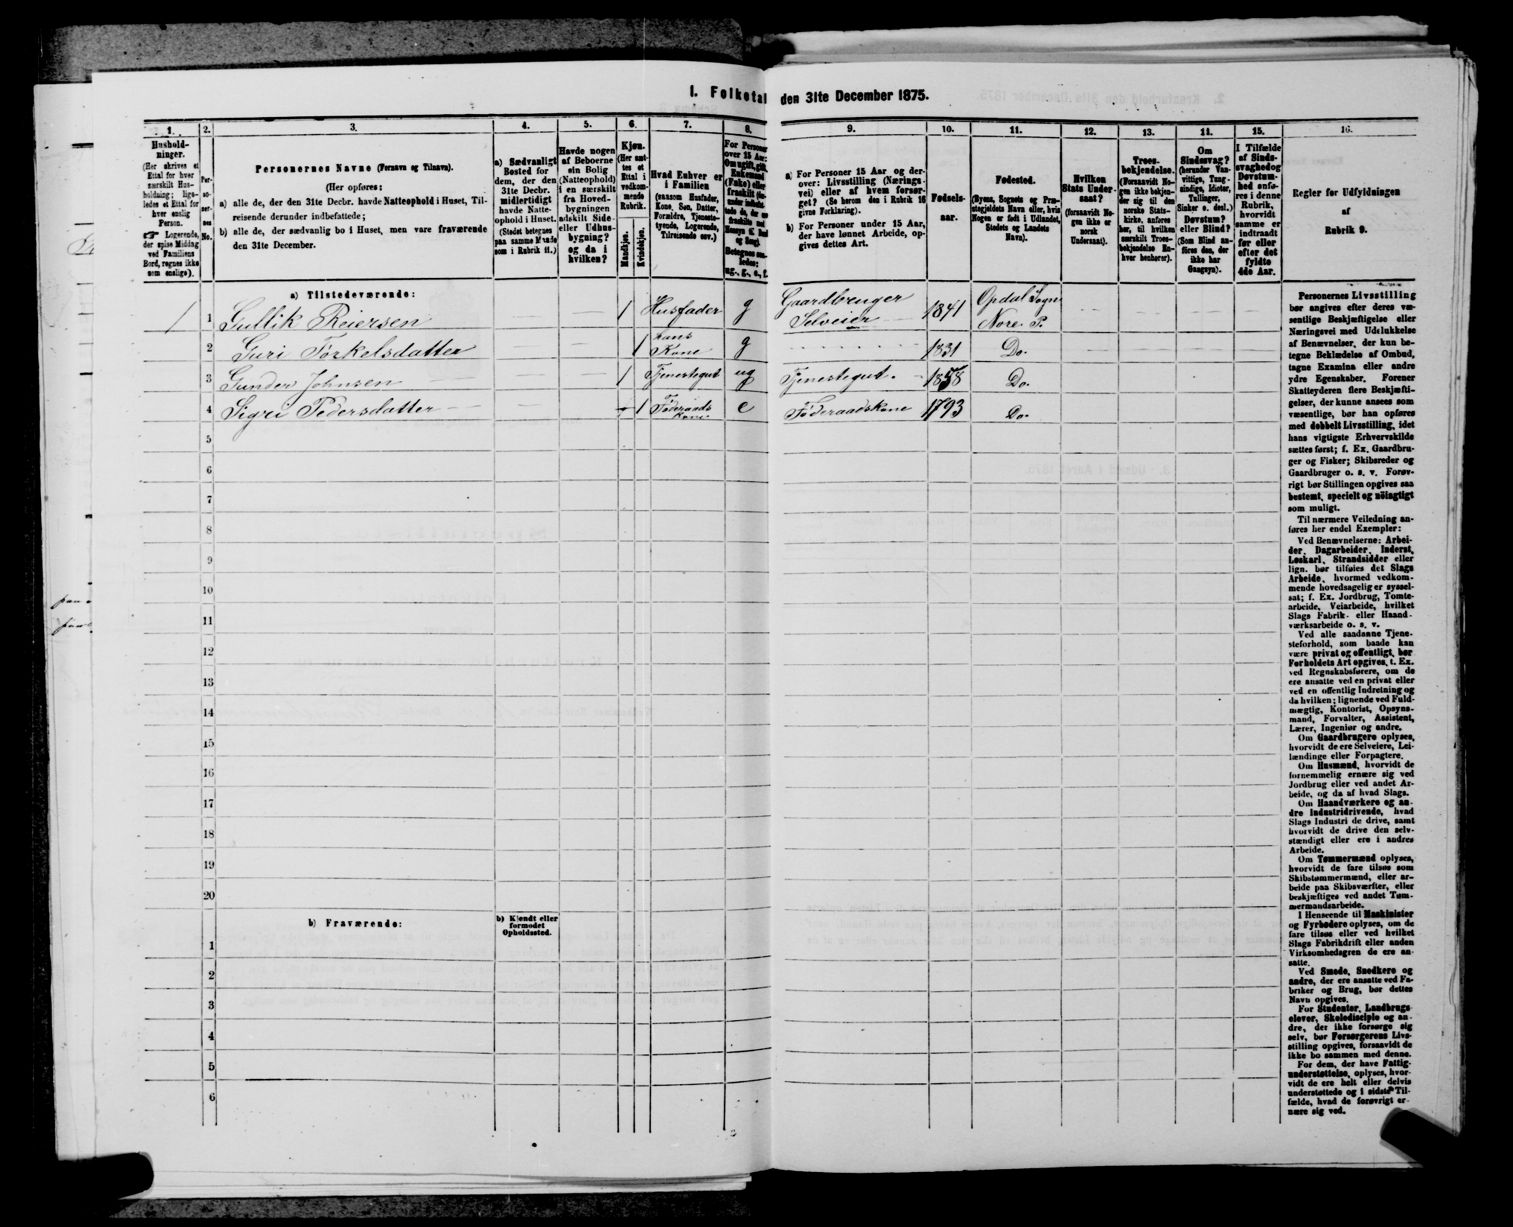 1. Folketal
den 31te December 1875.
1.
2.
3.
4.
5.
6.
7.
8.
9.
10.
11.
12.
13.
14.
15.
16.
Hushold-
ninger.
(Her skrives et
Ettal for hver
særskilt Hus-
holdning; lige-
ledes et Ettal for
hver enslig
Person.
Logerende,
der spise Middag
ved Familiens
Bord, regnes ikke
som enslige).
Per-
so-
ner-
nes
No.
Personernes Navne (Fornavn og Tilnavn).
(Her opføres:
a) alle de, der den 31te Decbr. havde Natteophold i Huset, Til-
reisende derunder indbefattede;
b) alle de, der sædvanlig bo i Huset, men vare fraværende
den 31te December.
a) Sædvanligt
Bosted for
dem, der den
31te Decbr.
midlertidigt
havde Natte-
ophold i Huset.
(Stedet betegnes
paa samme Maade
som i Rubrik 11.)
Havde nogen
af Beboerne
sin Bolig
(Natteophold)
i en særskilt
fra Hoved-
bygningen
adskilt Side-
eller Udhus-
bygning?
og da i
hvilken?
Kjøn.
(Her sæt-
tes et
Ettal i
vedkom-
mende
Rubrik.
Mandkjøn.
Kvindekjøn.
Hvad Enhver er
i Familien
(saasom Husfader,
Kone, Søn, Datter,
Forældre, Tjeneste-
tyende, Logerende,
Tilreisende osv.)
For Personer
over 15 Aar:
Om ugift, gift,
Enkemand
(Enke) eller
fraskilt
Betegnes saa-
ledes:
ug., g., e., f.
a) For Personer 15 Aar og der-
over: Livsstilling (Nærings-
vei) eller af hvem forsør-
get? (Se herom den i Rubrik 16
givne Forklaring).
b) For Personer under 15 Aar,
der have lønnet Arbeide, op-
gives dettes Art.
Fødsels-
aar.
Fødested.
(Byens, Sognets og Præ-
stegjeldets Navn eller, hvis
Nogen er født i Udlandet,
Stedets og Landets
Navn).
Hvilken
Stats Under-
saat?
(forsaavidt No-
gen ikke er
norsk
Undersaat).
Troes-
bekjendelse.
(Forsaavidt No-
gen ikke bekjen-
der sig til den
norske Stats-
kirke, anføres
her, til hvilken
særskilt Troes-
bekjendelse En-
hver henhører).
Om
Sindssvag?
(herunder Van-
vittige, Tung-
sindige, Idioter,
Tullinger,
Sinker o. desl.)
Døvstum?
eller Blind?
(Som Blind an-
føres den, der
ikke har
Gangsyn).
I Tilfælde
af Sinds-
svaghed og
Døvstum-
hed anfø-
res i denne
Rubrik,
hvorvidt
samme er
indtraadt
før eller
efter det
fyldte
4de Aar.
Regler for Udfyldningen
af
Rubrik 9.
a) Tilstedeværende:
1 1 Gullik Reiersen 1 Husfader g Gaardbruger Selveier 1841 Opdal Sogn Nore P.
2 Guri Torkelsdatter 1 hans Kone g 1831 Do.
3 Gunder Johnsen 1 Tjenestegut ug Tjenestegut. 1858 Do.
4 Sigri Pedersdatter 1 Føderaads Kone e Føderaadskone 1793 Do.
5
6
7
8
9
10
11
12
13
14
15
16
17
18
19
20
b) Fraværende:
b) Kjendt eller
formodet
Opholdssted.
1
2
3
4
5
6
Personernes Livsstilling
bør angives efter deres væ-
sentlige Beskjæftigelse eller
Næringsvei med Udelukkelse
af Benævnelser, der kun be-
tegne Beklædelse af Ombud,
tagne Examina eller andre
ydre Egenskaber. Forener
Skatteyderen flere Beskjæfti-
gelser, der kunne ansees som
væsentlige, bør han opføres
med dobbelt Livsstilling, idet
hans vigtigste Erhvervskilde
sættes først; f. Ex. Gaardbru-
ger og Fisker; Skibsreder og
Gaardbruger o. s. v. Forøv-
rigt bør Stillingen opgives saa
bestemt, specielt og nöiagtigt
som muligt.
Til nærmere Veiledning an-
føres her endel Exempler:
Ved Benævnelserne: Arbei-
der, Dagarbeider, Inderst,
Løskarl, Strandsidder eller
lign. bør tilføies det Slags
Arbeide, hvormed vedkom-
mende hovedsagelig er syssel-
sat; f. Ex. Jordbrug, Tomte-
arbeide, Veiarbeide, hvilket
Slags Fabrik- eller Haand-
værksarbeide o. s. v.
Ved alle saadanne Tjene-
steforhold, som baade kan
være privat og offentligt, bør
Forholdets Art opgives, t. Ex.
ved Regnskabsførere, om de
ere ansatte ved en privat eller
ved en offentlig Indretning og
da hvilken; lignende ved Fuld-
mægtig, Kontorist, Opsyns-
mand, Forvalter, Assistent,
Lærer, Ingeniør og andre.
Om Gaardbrugere oplyses,
hvorvidt de ere Selveiere, Lei-
lændinge eller Forpagtere.
Om Husmænd, hvorvidt de
fornemmelig ernære sig ved
Jordbrug eller ved andet Ar-
beide, og da af hvad Slags.
Om Haandværkere og an-
dre Industridrivende, hvad
Slags Industri de drive, samt
hvorvidt de drive den selv-
stændigt eller ere i andres
Arbeide.
Om Tømmermænd oplyses,
hvorvidt de fare tilsøs som
Skibstømmermænd, eller ar-
beide paa Skibsværfter, eller
beskjæftiges ved andet Tøm-
mermandsarbeide.
I Henseende til Maskinister
og Fyrbødere oplyses, om de
fare tilsøs eller ved hvilket
Slags Fabrikdrift eller anden
Virksomhedsgren de ere an-
satte.
Ved Smede, Snedkere og
andre, der ere ansatte ved Fa-
briker og Brug, bør dettes
Navn opgives.
For Studenter, Landbrugs-
elever, Skoledisciple og an-
dre, der ikke forsørge sig
selv, bør Forsørgerens Livs-
stilling opgives, forsaavidt de
ikke bo sammen med denne.
For dem, der have Fattig-
understøttelse, oplyses, hvor-
vidt de ere helt eller delvis
understøttede og i sidste Til-
fælde, hvad de forøvrigt er-
nære sig ved.